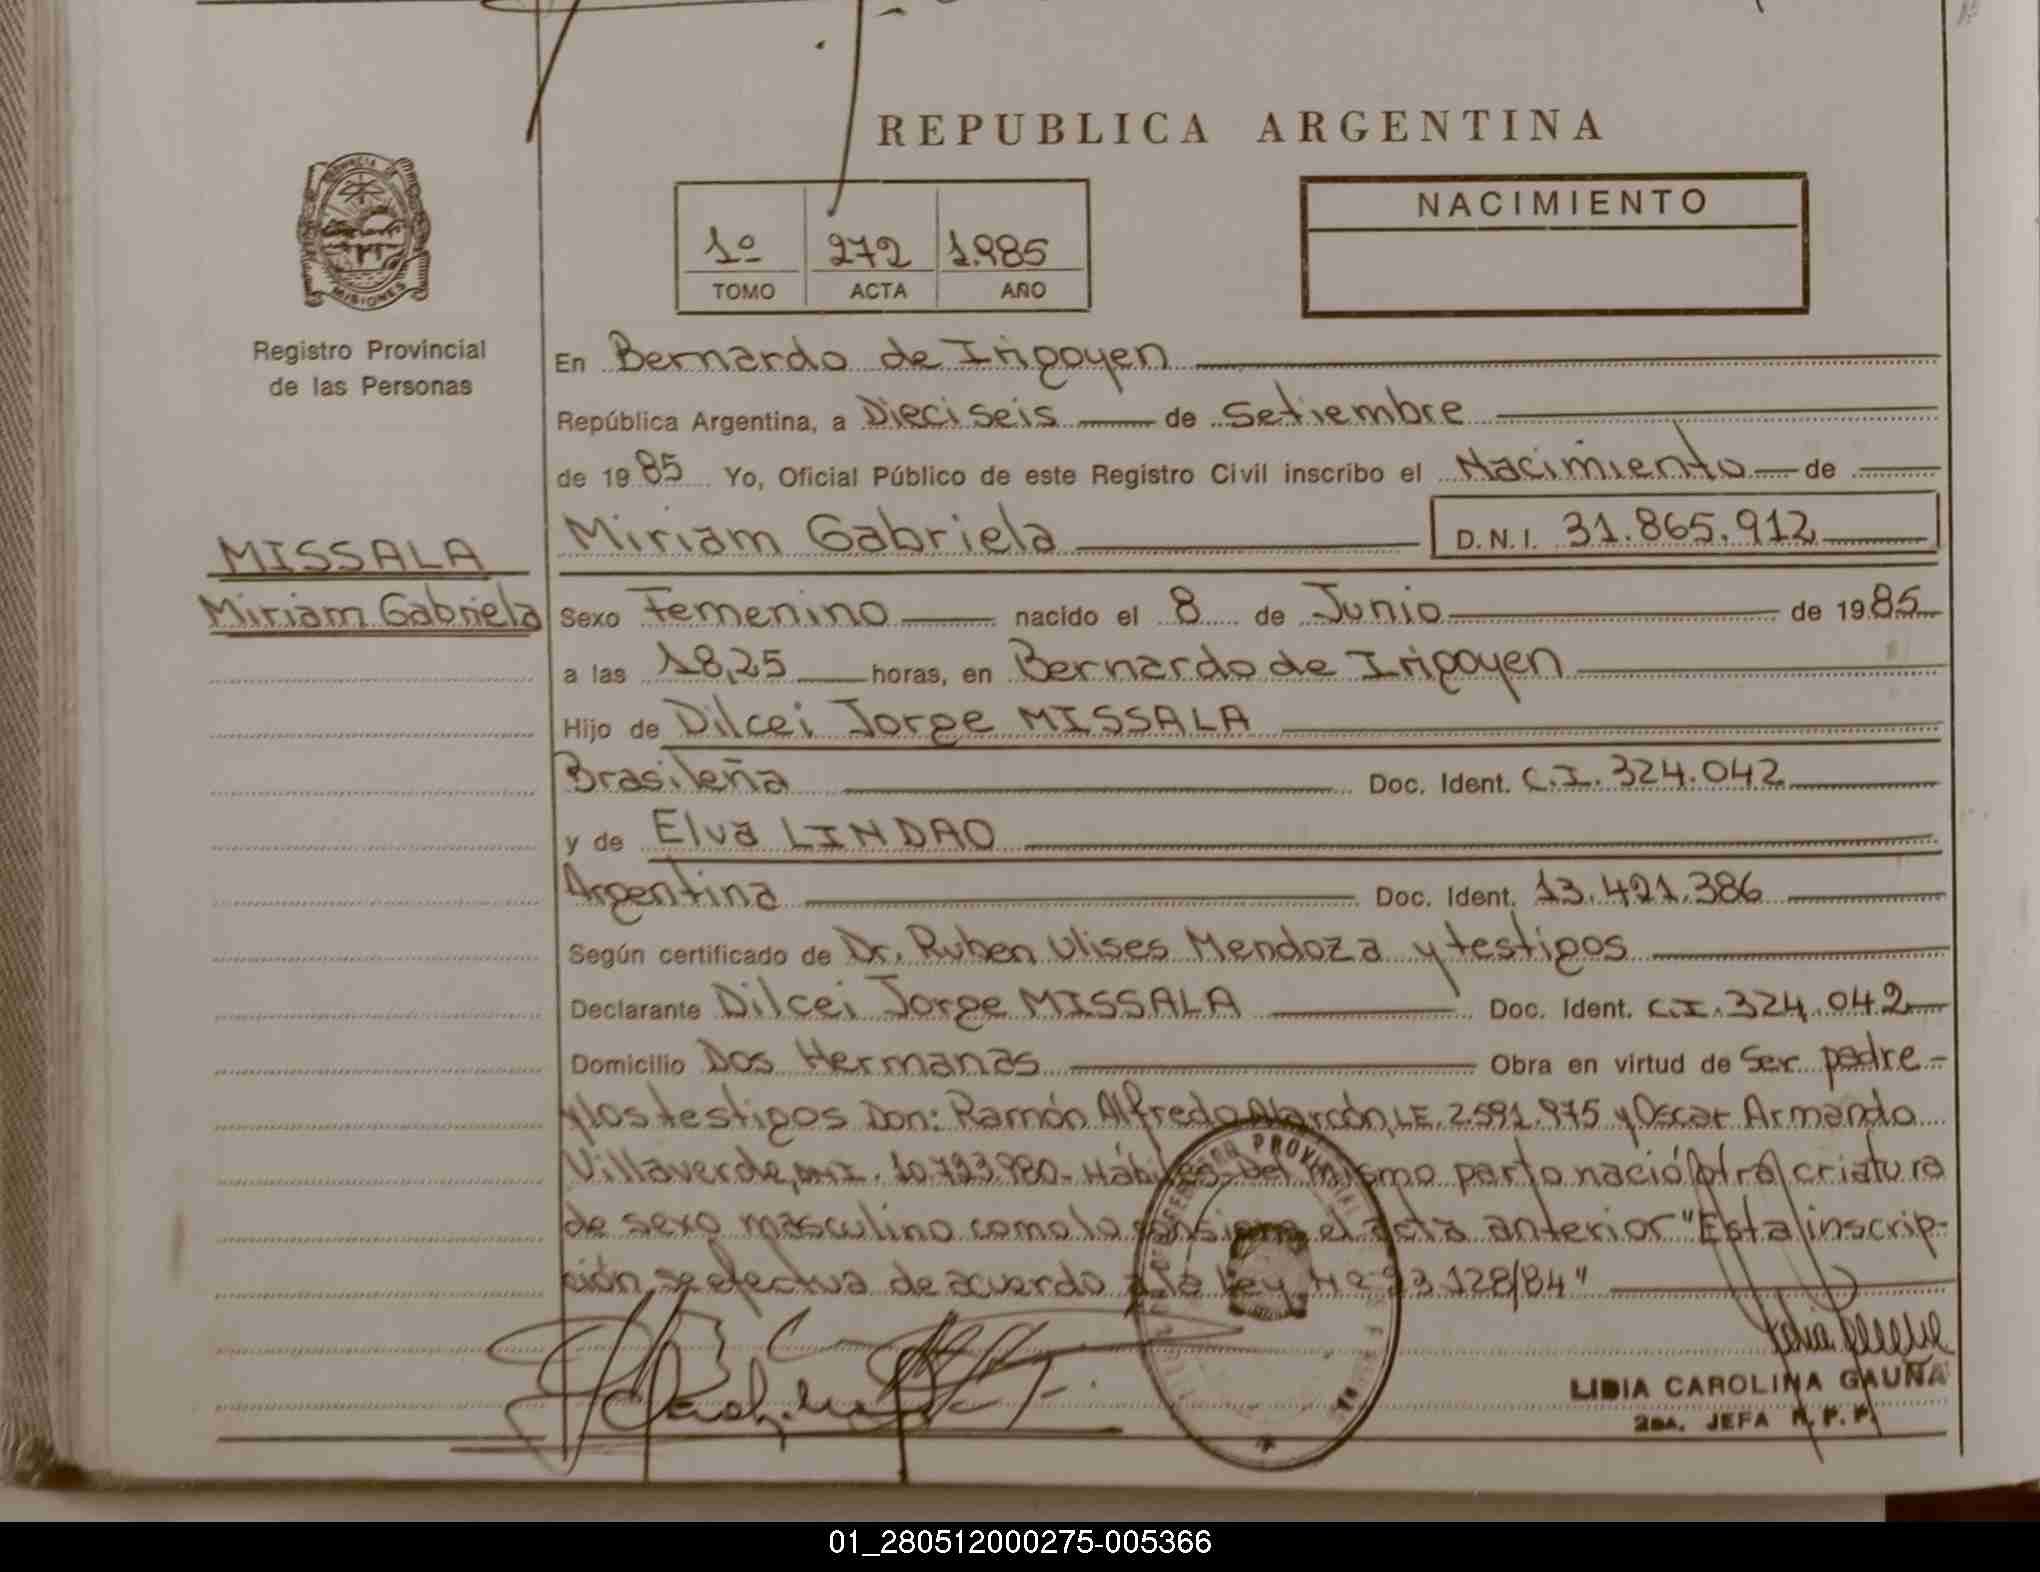 REPUBLICA ARGENTINA
NACIMIENTO
1º 272 1.985
TOMO ACTA AÑO
MISIONES
Registro Provincial
de las Personas
En Bernardo de Irigoyen
República Argentina, a Dieciseis de Setiembre
de 1985 Yo, Oficial Público de este Registro Civil inscribo el Nacimiento de
Miriam Gabriela D.N.I. 31.865.912
MISSALA
Miriam Gabriela
Sexo Femenino nacido el 8 de Junio de 1985
a las 18,25 horas, en Bernardo de Irigoyen
Hijo de Dilcei Jorge MISSALA
Brasileña Doc. Ident. C.I. 324.042
y de Elva LINDAO
Argentina Doc. Ident. 13.421.386
Según certificado de Dr. Ruben Ulises Mendoza y testigos
Declarante Dilcei Jorge MISSALA Doc. Ident. C.I. 324.042
Domicilio Dos Hermanas Obra en virtud de Ser padre-
y los testigos Don: Ramón Alfredo Alarcón, LE. 2.591.975 y Oscar Armando
Villaverde, DNI. 10.793.980- Hábiles- Del mismo parto nació otra criatura
de sexo masculino como lo consigna el acta anterior "Esta inscrip-
ción se efectua de acuerdo a la Ley Nº 23.128/84"
LIDIA CAROLINA GAUNA
2DA. JEFA R.P.P.
01_280512000275-005366